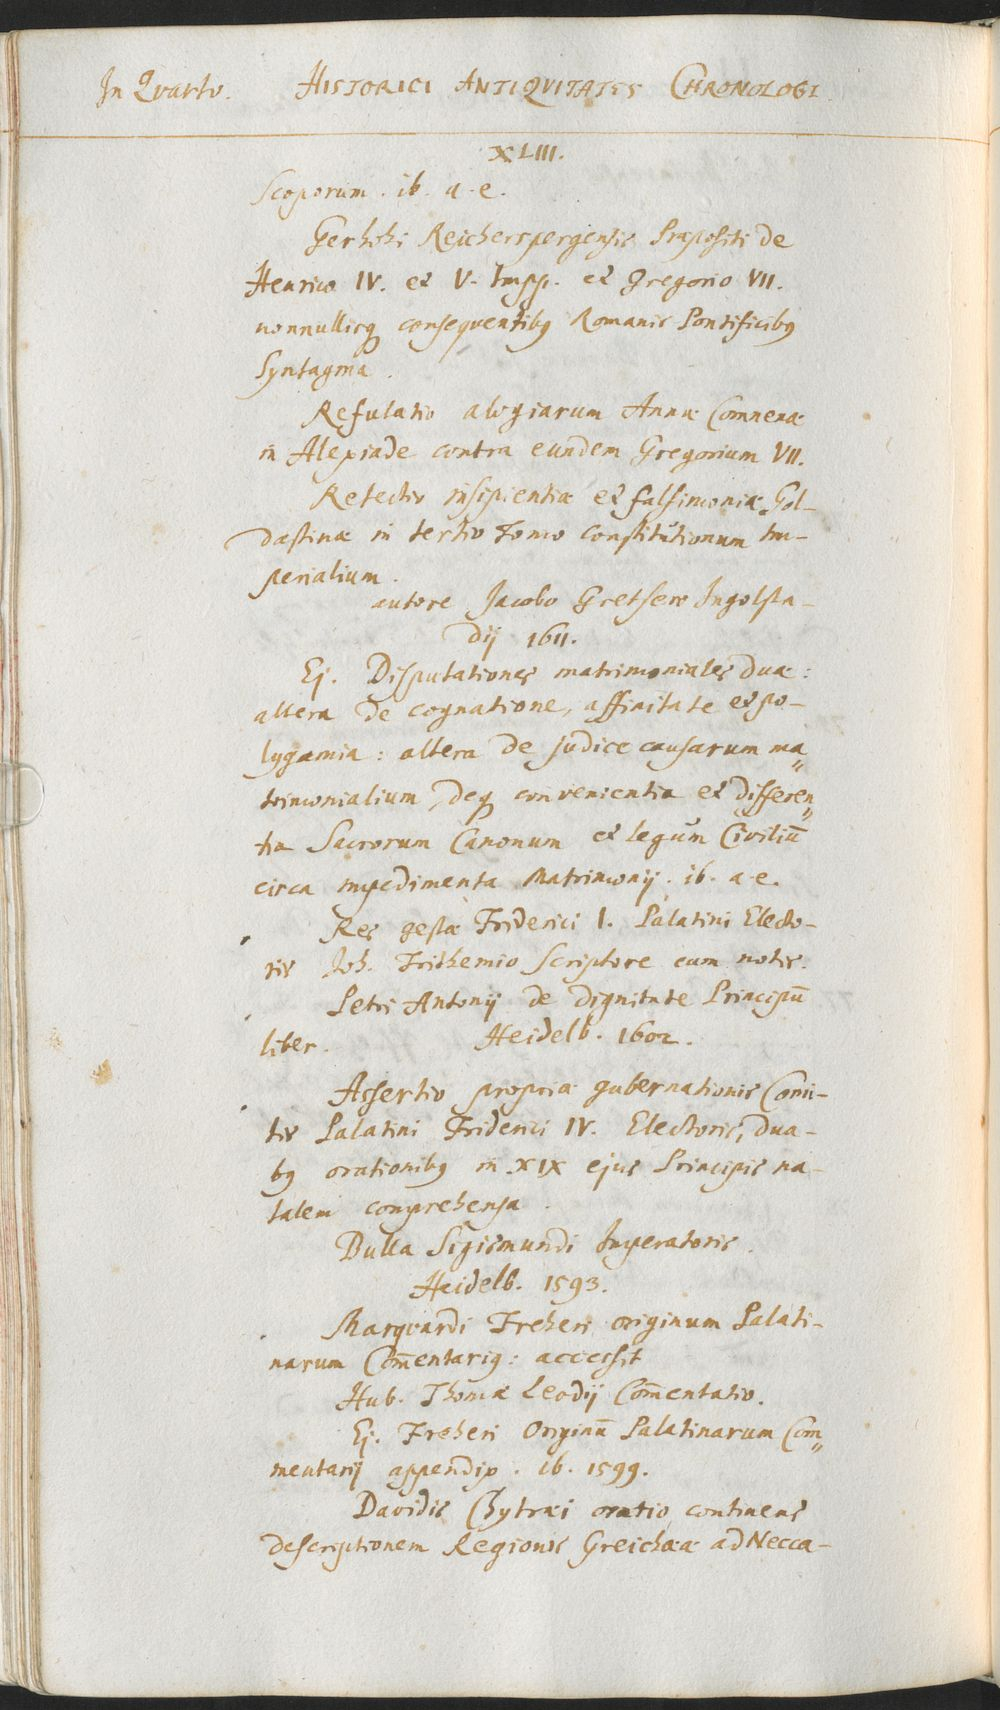 In Qvarto. HISTORICI ANTIQVITATES CHRONOLOGI
XLIII.
Scoporum. ib. a. e.
Gerhohi Reicherspergensis Præpositi de
Henrico IV. et V. Impp. et Gregorio VII.
nonnullisq consequentibq Romanis Pontificibq
Syntagma.
Refutatio alogiarum Annæ Comnenæ
in Alexiade contra eundem Gregorium VII.
Retectio insipientiæ et falsimoniæ Gol-
dastinæ in tertio Tomo Constitutionum Im-
perialium.
autore Jacobo Gretsero Ingolsta-
dij 1611.
Ej. Disputationes matrimoniales duæ:
altera de cognatione, affinitate et po-
lygamia: altera de judice causarum ma„
trimonialium, deq convenientia et differen„
tia Sacrorum Canonum et legum Civiliū
circa impedimenta Matrimonij. ib. a. e.
Res gestæ Friderici I. Palatini Electo-
ris Joh. Trithemio Scriptore cum notis.
Petri Antonij de dignitate Principū
liber. Heidelb. 1602.
Assertio propria gubernationis Comi-
tis Palatini Friderici IV. Electoris, dua-
bq orationibq in XIX ejus Principis na-
talem comprehensa.
Bulla Sigismundi Imperatoris.
Heidelb. 1593.
Marqvardi Freheri originum Palati-
narum Com̄entariq: accessit
Hub. Thomæ Leodij Com̄entatio.
Ej. Freheri Originū Palatinarum Com„
mentarij appendix. ib. 1599.
Davidis Chytræi oratio continens
descriptionem Regionis Greichææ ad Necca-